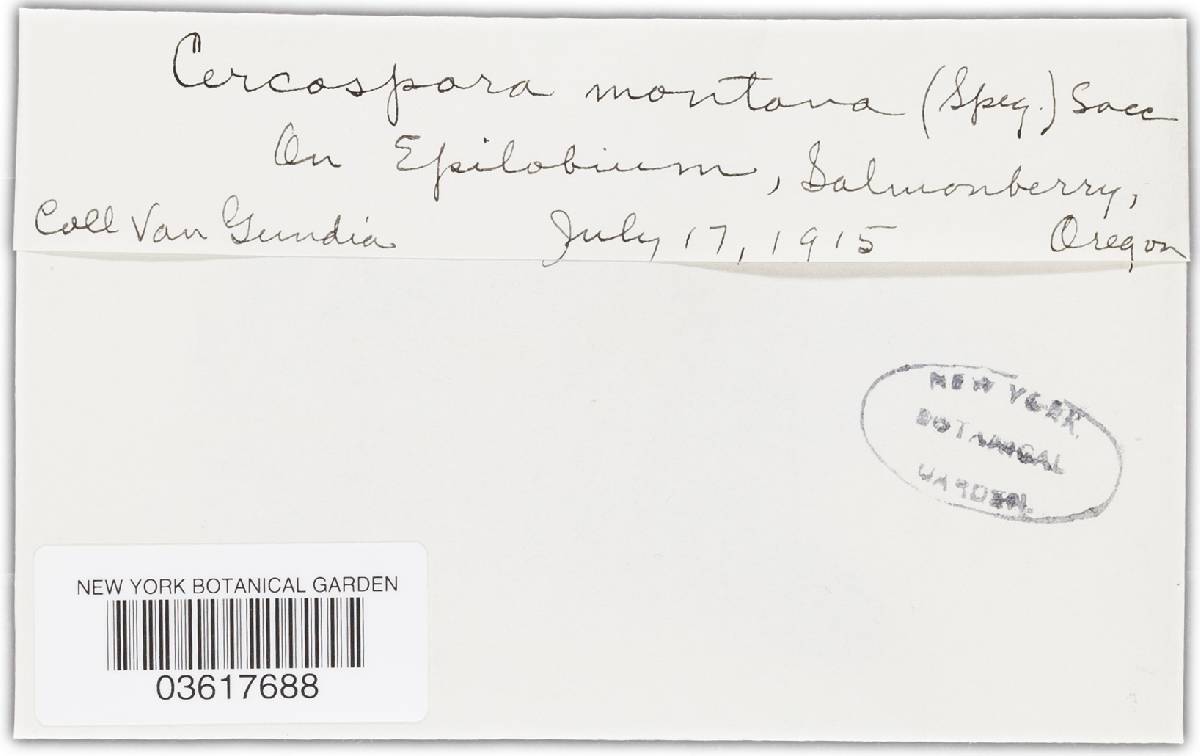 Cercospora montana (Speg.) Sacc
On Epilobium, Salmonberry,
Coll Van Gundia July 17, 1915 Oregon
NEW YORK
BOTANICAL
GARDEN.
NEW YORK BOTANICAL GARDEN
03617688